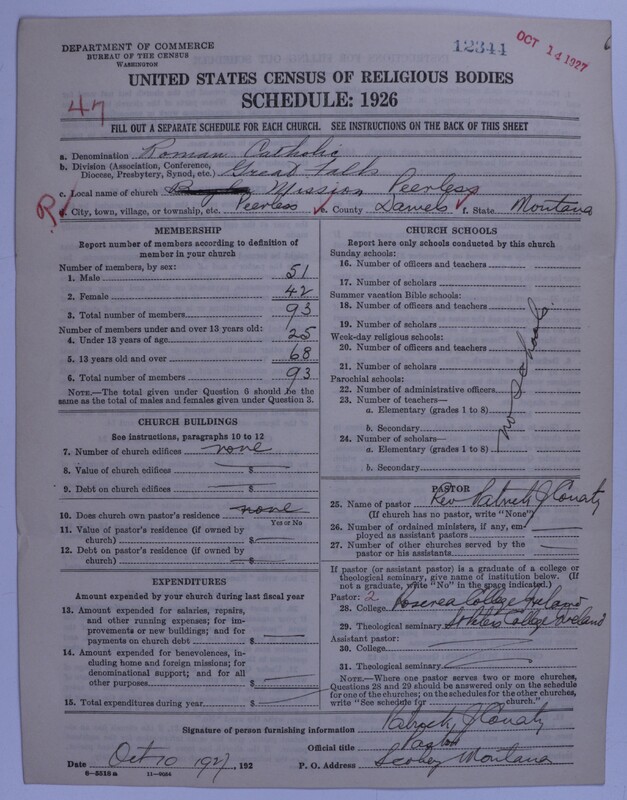 DEPARTMENT OF COMMERCE
BUREAU OF THE CENSUS
WASHINGTON
12344
OCT 14 1927
UNITED STATES CENSUS OF RELIGIOUS BODIES
SCHEDULE: 1926
47
FILL OUT A SEPARATE SCHEDULE FOR EACH CHURCH. SEE INSTRUCTIONS ON THE BACK OF THIS SHEET
a. Denomination Roman Catholic
b. Division (Association, Conference,
Diocese, Presbytery, Synod, etc.) Great Falls
c. Local name of church Mission Peerless
d. City, town, village, or township, etc. Peerless e. County Daniels f. State Montana
MEMBERSHIP
Report number of members according to definition of
member in your church
Number of members, by sex:
1. Male 51
2. Female 42
3. Total number of members 93
Number of members under and over 13 years old:
4. Under 13 years of age 25
5. 13 years old and over 68
6. Total number of members 93
NOTE.—The total given under Question 6 should be the
same as the total of males and females given under Question 3.
CHURCH BUILDINGS
See instructions, paragraphs 10 to 12
7. Number of church edifices none
8. Value of church edifices $
9. Debt on church edifices $
10. Does church own pastor's residence none
Yes or No
11. Value of pastor's residence (if owned by
church) $
12. Debt on pastor's residence (if owned by
church) $
EXPENDITURES
Amount expended by your church during last fiscal year
13. Amount expended for salaries, repairs,
and other running expenses; for im-
provements or new buildings; and for
payments on church debt $
14. Amount expended for benevolences,
including home and foreign missions; for
denominational support; and for all
other purposes $
15. Total expenditures during year $
CHURCH SCHOOLS
Report here only schools conducted by this church
Sunday schools:
16. Number of officers and teachers
17. Number of scholars
Summer vacation Bible schools:
18. Number of officers and teachers
19. Number of scholars
Week-day religious schools:
20. Number of officers and teachers
21. Number of scholars
Parochial schools:
22. Number of administrative officers
23. Number of teachers—
a. Elementary (grades 1 to 8)
b. Secondary
24. Number of scholars—
a. Elementary (grades 1 to 8)
b. Secondary
no schools.
PASTOR
25. Name of pastor Rev Patrick J Conaty
(If church has no pastor, write "None")
26. Number of ordained ministers, if any, em-
ployed as assistant pastors
27. Number of other churches served by the
pastor or his assistants
If pastor (or assistant pastor) is a graduate of a college or
theological seminary, give name of institution below. (If
not a graduate, write "No" in the space indicated.)
Pastor: 2
28. College Roscrea College Ireland
29. Theological seminary College Ireland
Assistant pastor:
30. College
31. Theological seminary
NOTE.—Where one pastor serves two or more churches,
Questions 28 and 29 should be answered only on the schedule
for one of the churches; on the schedules for the other churches,
write "See schedule for church."
Signature of person furnishing information Patrick J Conaty
Official title Pastor
Date Oct 10 1927, 192 P. O. Address Scobey Montana
6–5518a 11–9684